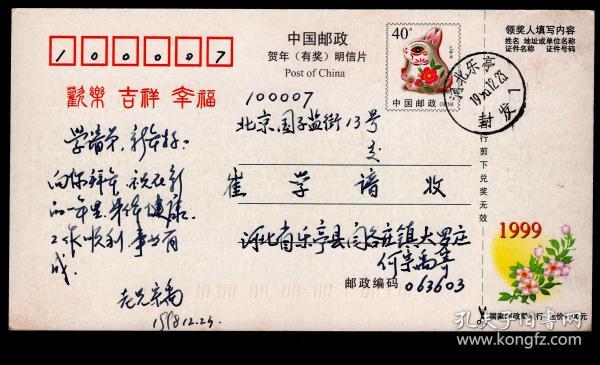 100007
欢乐 吉祥 幸福
中国邮政
贺年（有奖）明信片
Post of China
40分
中国邮政 CHINA
领奖人填写内容
姓名 地址或单位名称
证件名称 证件号码
河北乐亭
100007
北京国子监街13号
交
崔学谙收
河北省乐亭县阎各庄镇大罗庄
何宗禹寄
邮政编码 063603
学谙弟，新年好：
向你拜年 祝在新
的一年里 身体健康
工作顺利 事业有
成。
老兄宗禹
1998.12.23
1999
自行剪下兑奖无效
国家邮政局发行
孔夫子旧书网
www.kongfz.com